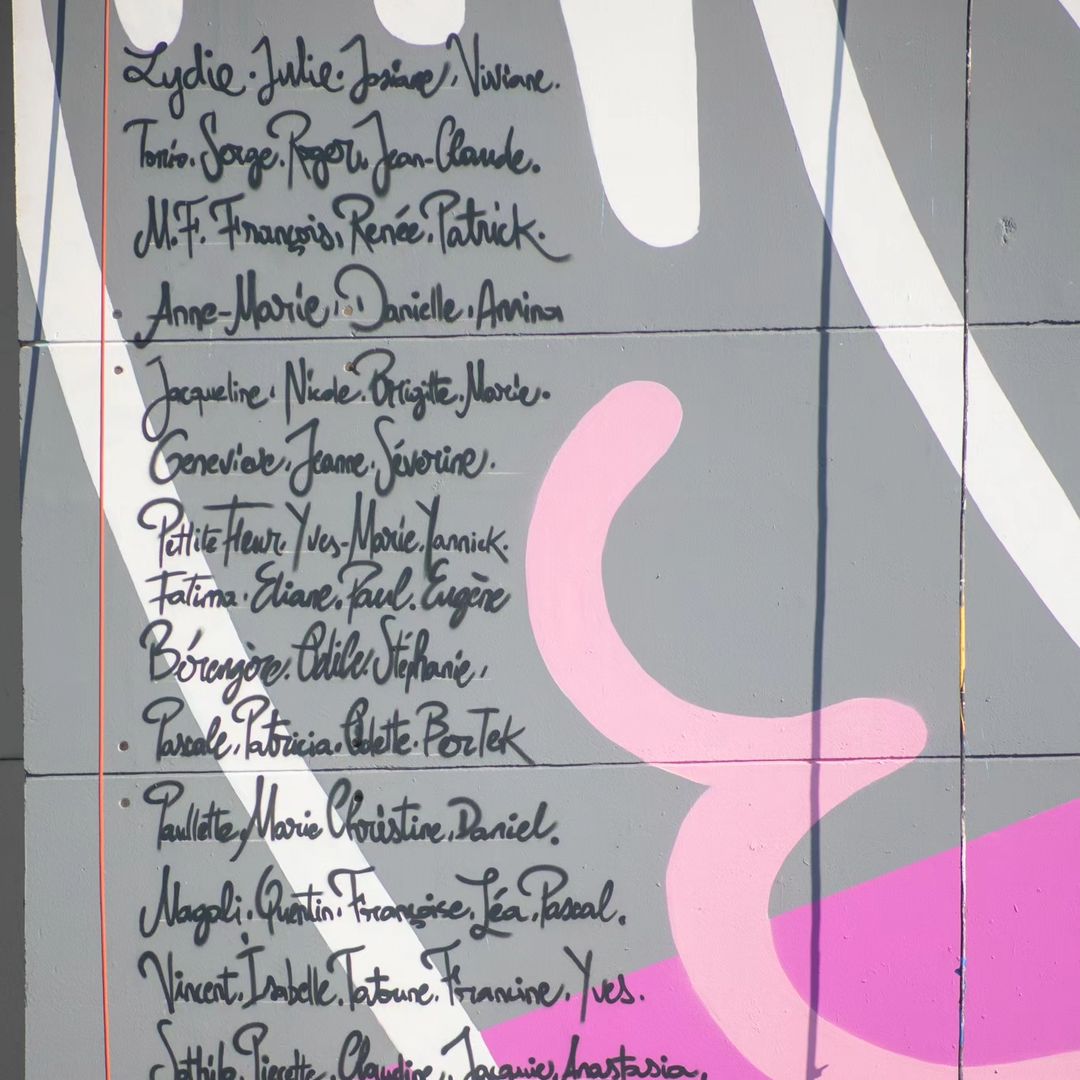 Lydie. Julie. Josiane, Viviane.
Serge. Roger, Jean-Claude.
M.F. François, Renée, Patrick.
Anne-Marie, Danielle, Annina
Jacqueline, Nicole. Brigitte. Marie.
Geneviève, Jeanne. Séverine.
Petite Fleur, Yves-Marie, Yannick.
Fatima. Eliane. Paul. Eugène
Bérengère. Odile. Stéphanie,
Pascale, Patricia. Odette. BorTek
Paullette, Marie Christine, Daniel.
Magali. Quentin. Françoise. Léa. Pascal.
Vincent, Isabelle, Tatoune. Francine. Yves.
Pierette, Claudine, Jacquie, Anastasia,